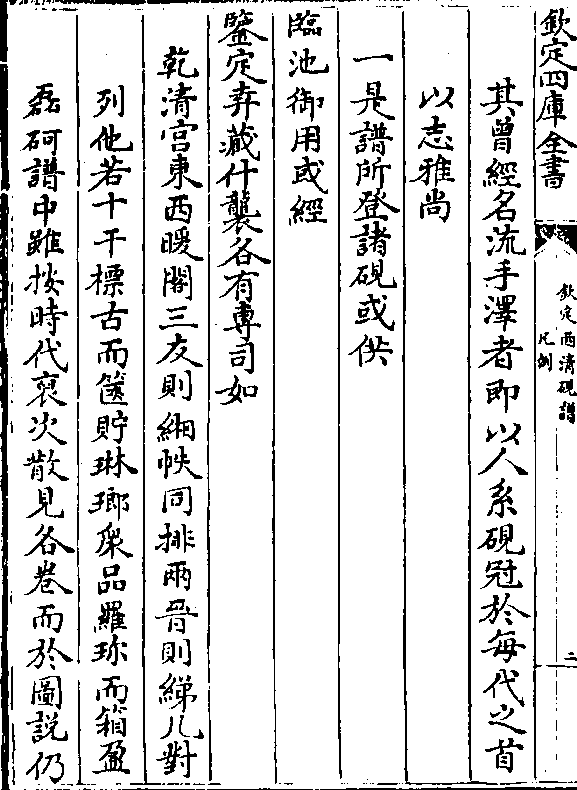 欽定四庫全書
欽定西清硯譜
凡例
二
其曾經名流手澤者即以人系硯冠於每代之首
以志雅尚
一是譜所登諸硯或供
臨池御用或經
鑒定弆藏什襲各有專司如
乾清宮東西暖閣三友則緗帙同排兩晉則綈几對
列他若十干標古而篋貯琳瑯衆品羅珍而箱盈
磊砢譜中雖按時代裒次散見各卷而於圖說仍